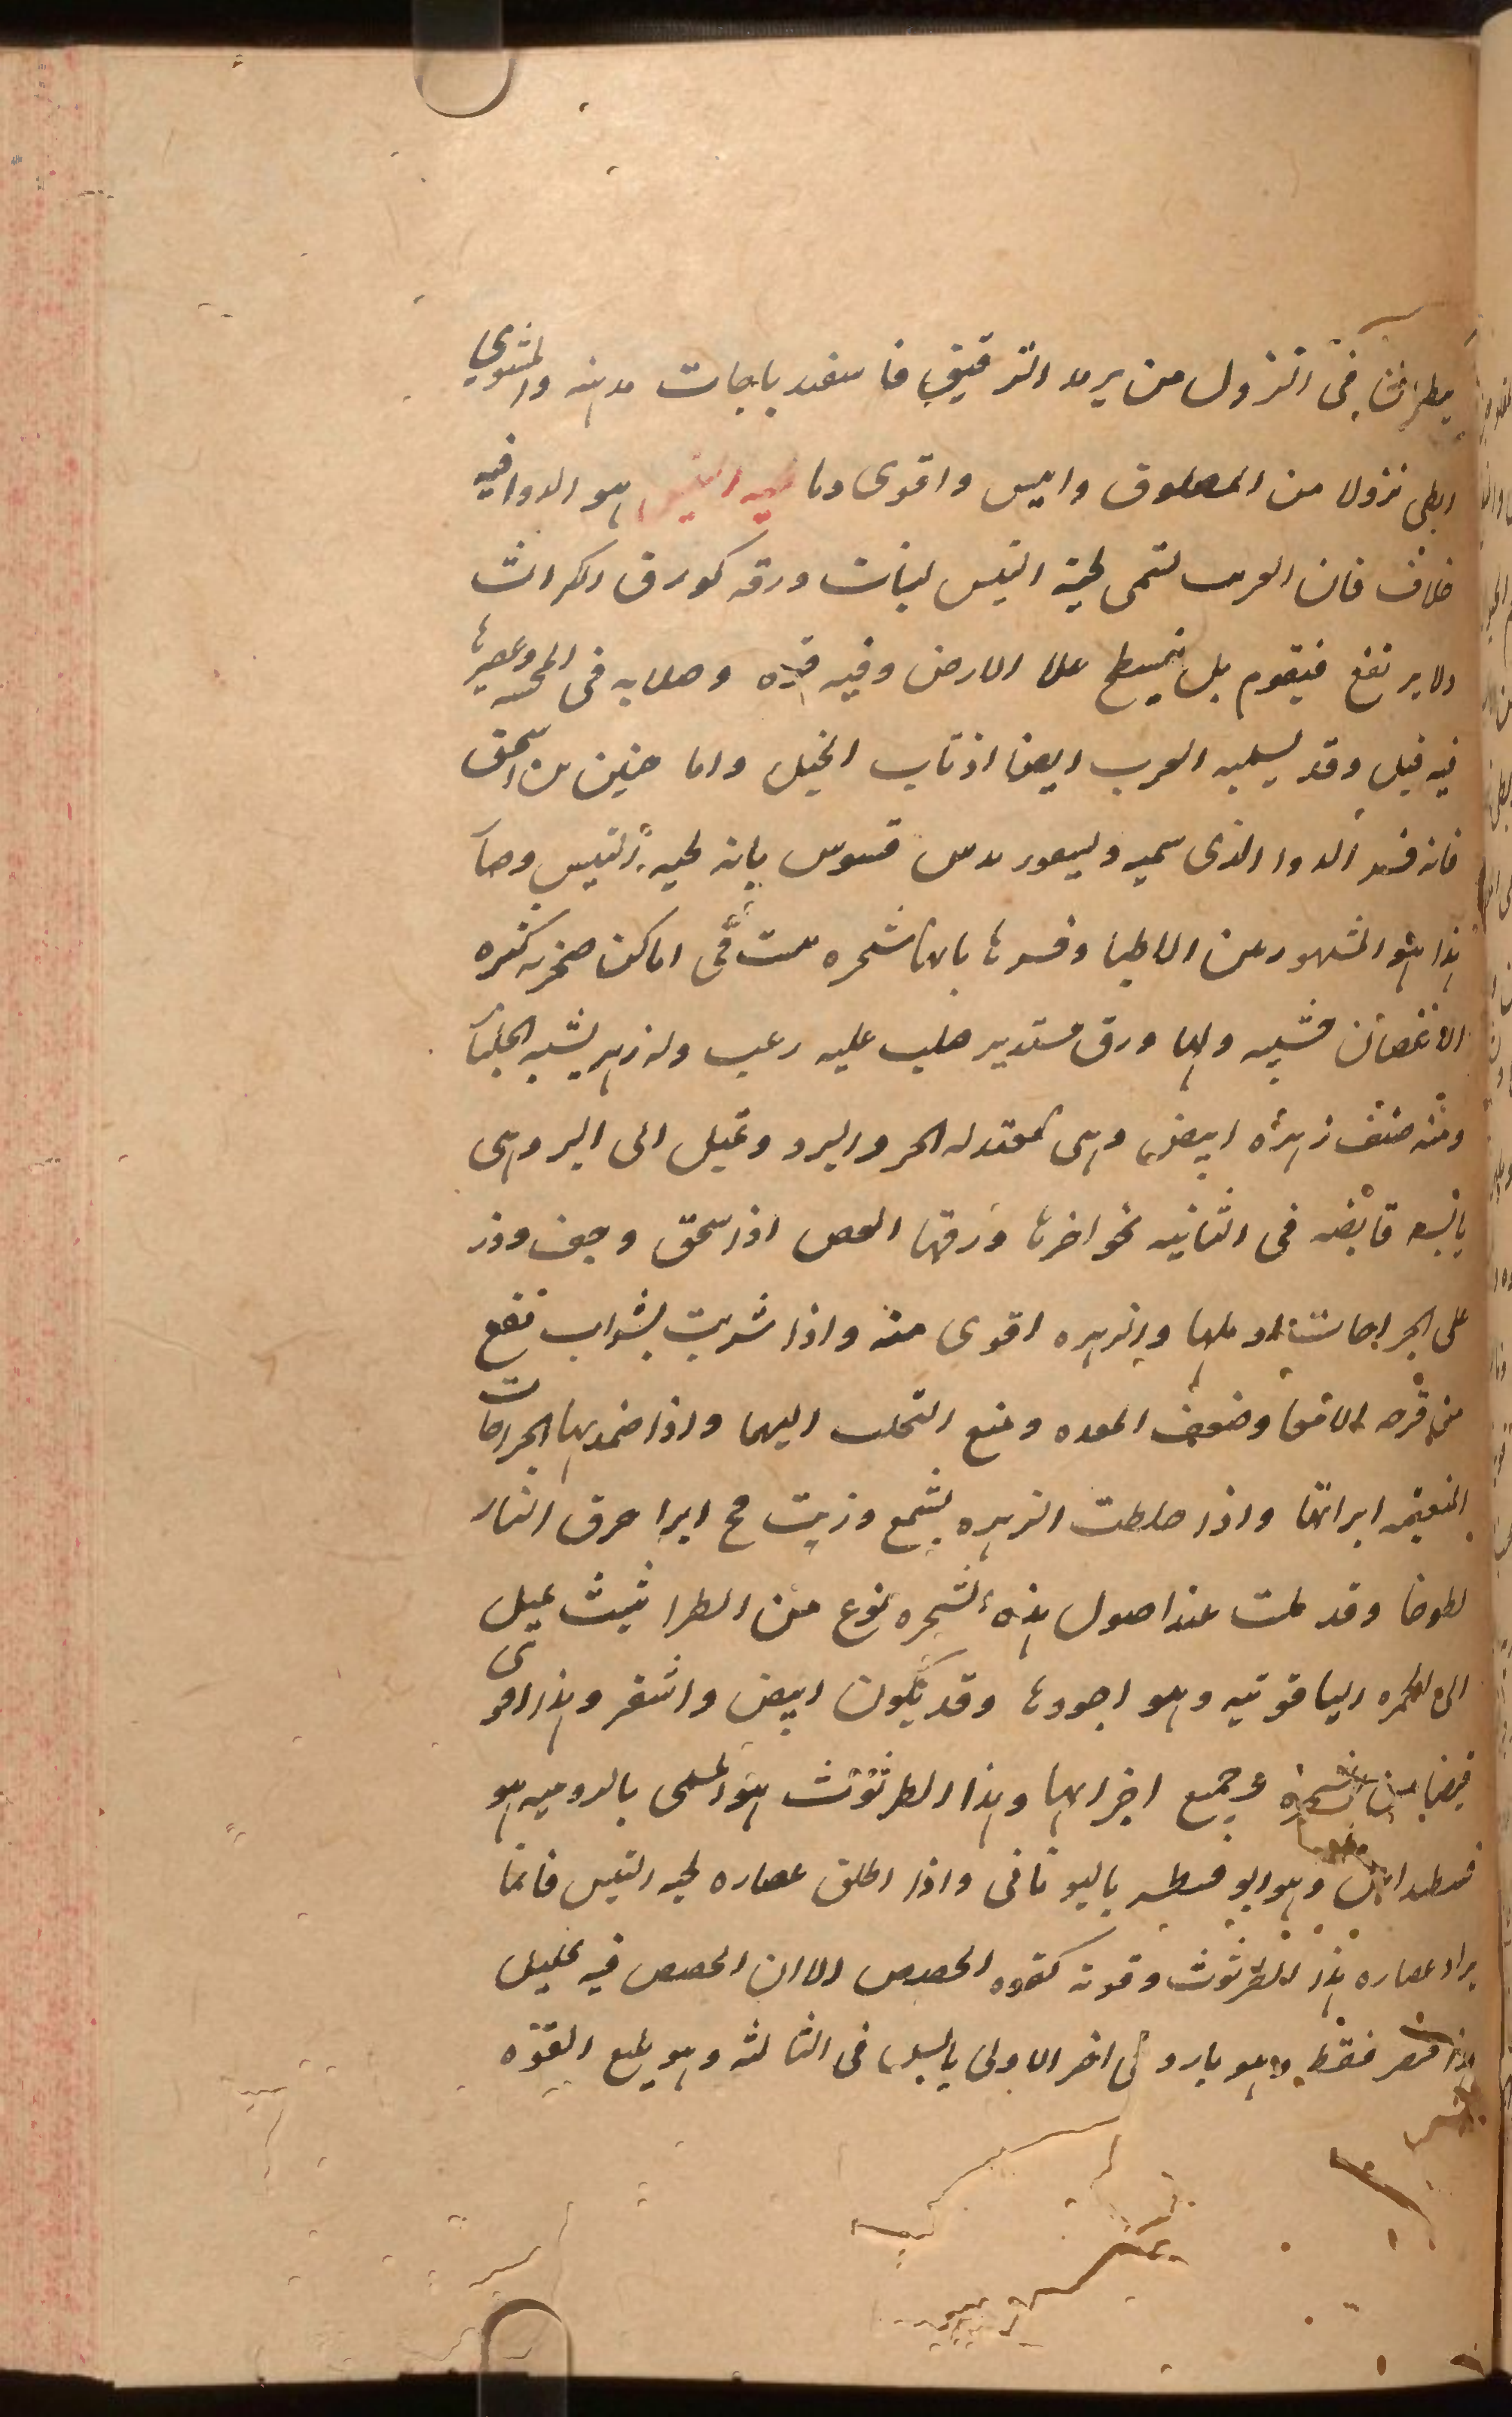 يطرقها فى النزول من يريد الترقيق فاسفيد باجات مدهنه والمشوى
ابطى نزولا من المصلوق وايبس واقوى دما لحيه التيس هو الدوا فيه
خلاف فان العرب تسمى لحية التيس لنبات ورقه كورق الكراث
ولا يرتفع فيقوم بل ينبسط علا الارض وفيه قوه وصلابه فى المجسه وعصيرها
فيه قبل وقد يسميه العرب ايضا اذناب الخيل واما حنين بن اسحق
فانه فسر الدوا الذى سميه ديسقوريدس قسوس بانه لحيه التيس وصار
هذا هو المشهور عن الاطبا وفسرها بانها شجره تنبت فى اماكن صخريه كثيره
الاغصان خشبيه ولها ورق مستدير صلب عليه زغب وله زهر يشبه الجلنار
ومنه صنف زهره ابيض وهى معتدله الحر والبرد وتميل الى البر وهى
يابسه قابضه فى الثانيه نحو اخرها ورقها الغض اذا سحق وجفف وذر
على الجراحات ادملها والزهره اقوى منه واذا شربت بشراب نفع
من قرحه الامعا وضعف المعده ومنع التحلب اليها واذا ضمد بها الجراحات
المتعفنه ابراتها واذا خلطت الزهره بشمع وزيت مح ابرا حرق النار
لطوخا وقد ينبت عند اصول هذه الشجره نوع من الطراثيث يميل
الى الحمره الياقوتيه وهو اجودها وقد يكون ابيض واشقر وهذا اقوى
قبضا من الشجره وجميع اجزايها وهذا الطرثوث هو المسمى بالروميه هو
فسطيداس وهو ابوقسطيس باليونانى واذا اطلق عصاره لحيه التيس فانما
يراد عصاره هذا الطرثوث وقوته كقوه الحضض الا ان الحضض فيه تحليل
هذا قبض فقط وهو بارد فى اخر الاولى يابس فى الثالثه وهو يمنع القوه